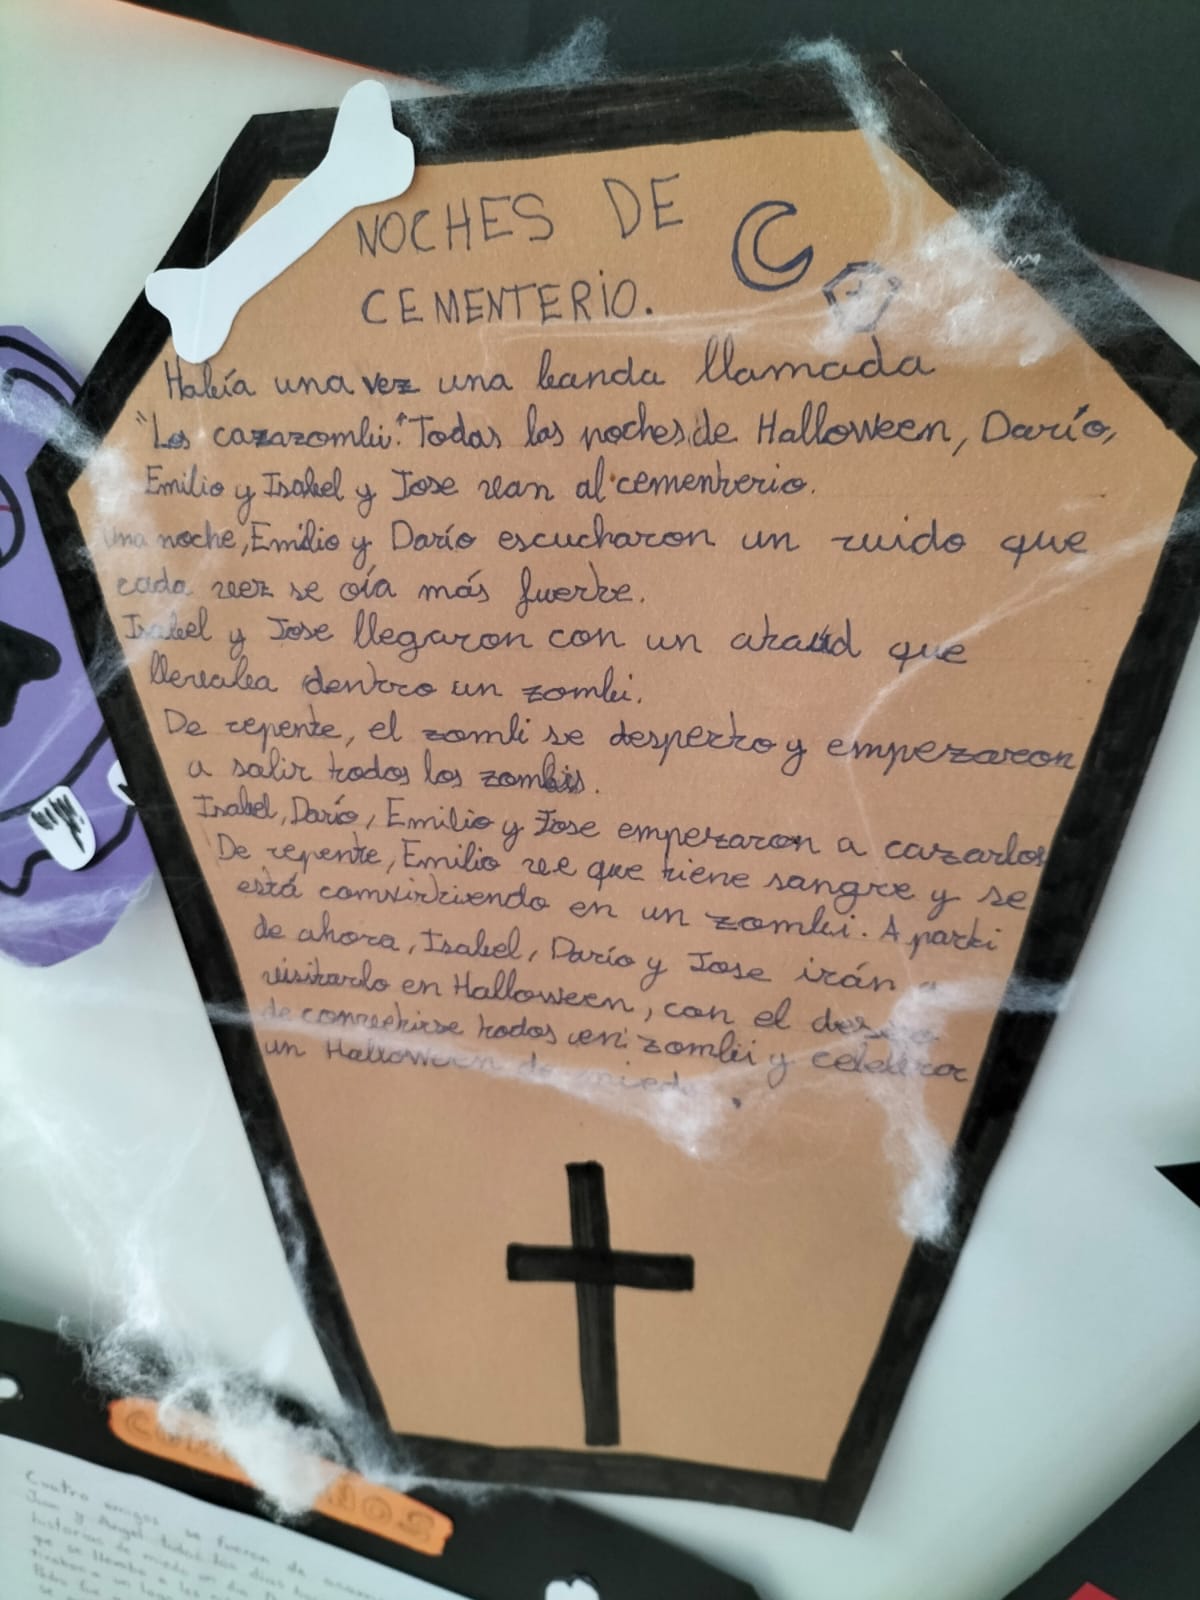 NOCHES DE
CEMENTERIO.
Había una vez una banda llamada
"Los cazazombis". Todas las noches de Halloween, Darío,
Emilio y Isabel y Jose van al cementerio.
Una noche, Emilio y Darío escucharon un ruido que
cada vez se oía más fuerte.
Isabel y Jose llegaron con un ataud que
llevaba dentro un zombi.
De repente, el zombi se desperto y empezaron
a salir todos los zombis.
Isabel, Darío, Emilio y Jose empezaron a cazarlos
De repente, Emilio ve que tiene sangre y se
está convirtiendo en un zombi. A parti
de ahora, Isabel, Darío y Jose irán a
visitarlo en Halloween, con el deseo
de convertirse todos en zombi y celebrar
un Halloween de miedo.
Cuatro amigos se fueron de
Juan y Angel todos los dias
historias de miedo un dia
que se llevaba a los